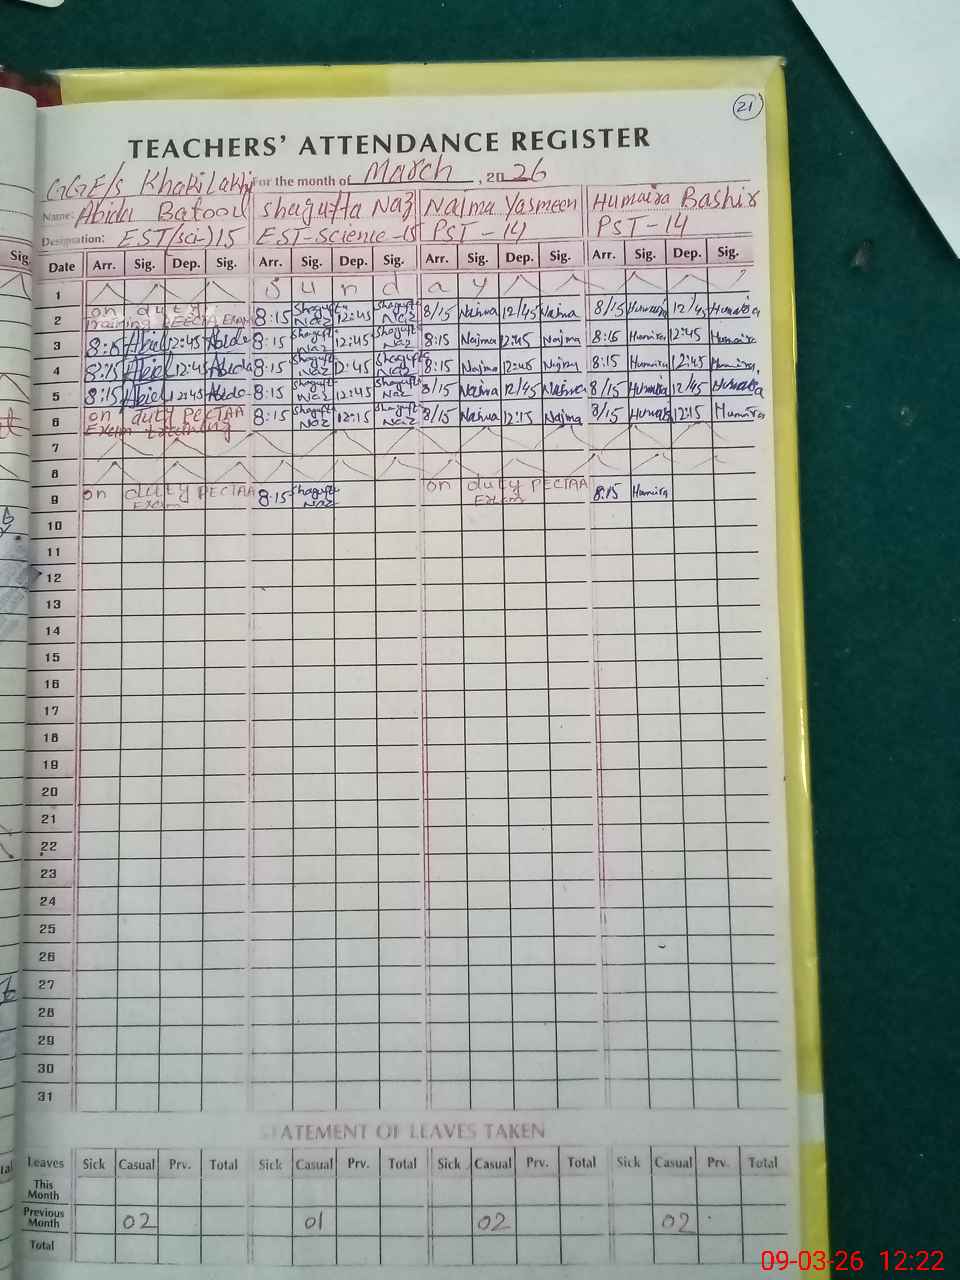 21
TEACHERS' ATTENDANCE REGISTER
GGE/S Khakilakhi For the month of March, 2026
Name: Abida Batool Shagufta Naz Najma Yasmeen Humaira Bashir
Designation: EST(sci-)15 EST-Science-15 PST-14 PST-14
Date Arr. Sig. Dep. Sig. Arr. Sig. Dep. Sig. Arr. Sig. Dep. Sig. Arr. Sig. Dep. Sig.
1 S u n d a y
2 on duty training PEECTA EXAM 8:15 Shagufta Naz 12:45 Shagufta Naz 8/15 Najma 12/45 Najma 8/15 Humaira 12/45 Humaira
3 8:15 Abid 12:45 Abida 8:15 Shagufta Naz 12:45 Shagufta Naz 8:15 Najma 12:45 Najma 8:15 Humaira 12:45 Humaira
4 8:15 Abid 12:45 Abida 8:15 Shagufta Naz 12:45 Shagufta Naz 8:15 Najma 12:45 Najma 8:15 Humaira 12:45 Humaira
5 8:15 Abid 12:45 Abida 8:15 Shagufta Naz 12:45 Shagufta Naz 8/15 Najma 12/45 Najma 8/15 Humaira 12/45 Humaira
6 on duty PECTAA Exam training 8:15 Shagufta Naz 12:15 Shagufta Naz 8/15 Najma 12:15 Najma 8/15 Humaira 12:15 Humaira
7
8
9 on duty PECTAA Exam 8:15 Shagufta Naz on duty PECTAA Exam 8:15 Humaira
10
11
12
13
14
15
16
17
18
19
20
21
22
23
24
25
26
27
28
29
30
31
STATEMENT OF LEAVES TAKEN
Leaves Sick Casual Prv. Total Sick Casual Prv. Total Sick Casual Prv. Total Sick Casual Prv. Total
This Month
Previous Month 02 01 02 02
Total
09-03-26 12:22